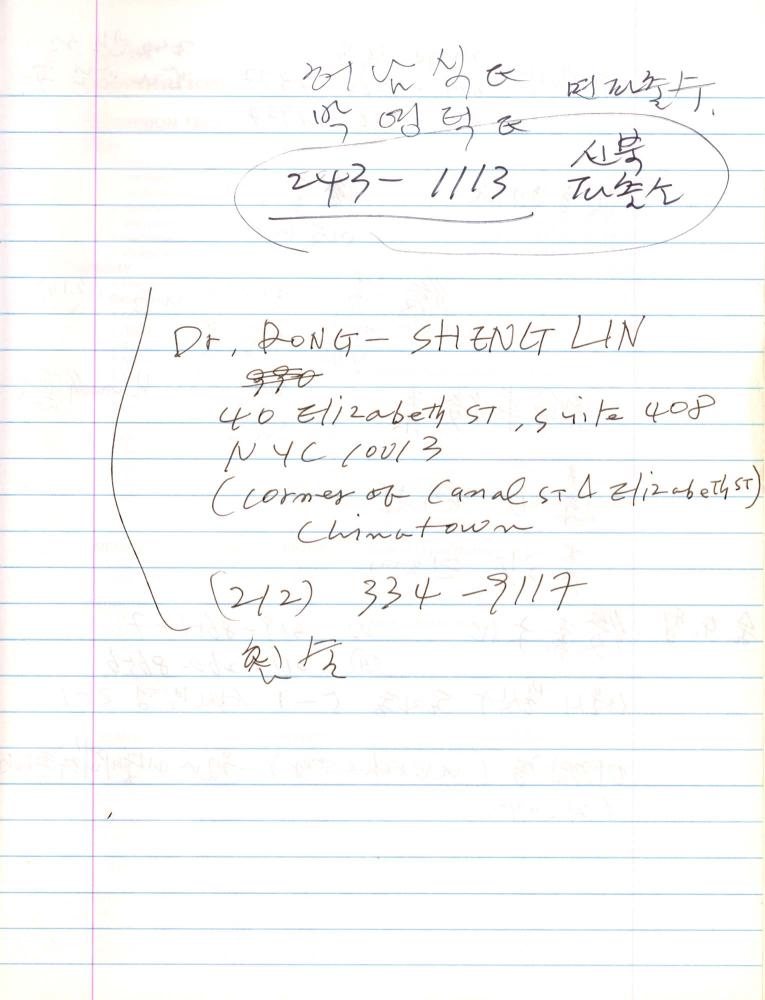 허남식
박영덕
243-1113 신북
파출소
Dr, RONG-SHENG LIN
40 Elizabeth ST, suite 408
NYC 10013
(corner of Canal ST & Elizabeth ST)
Chinatown
(212) 334-9117